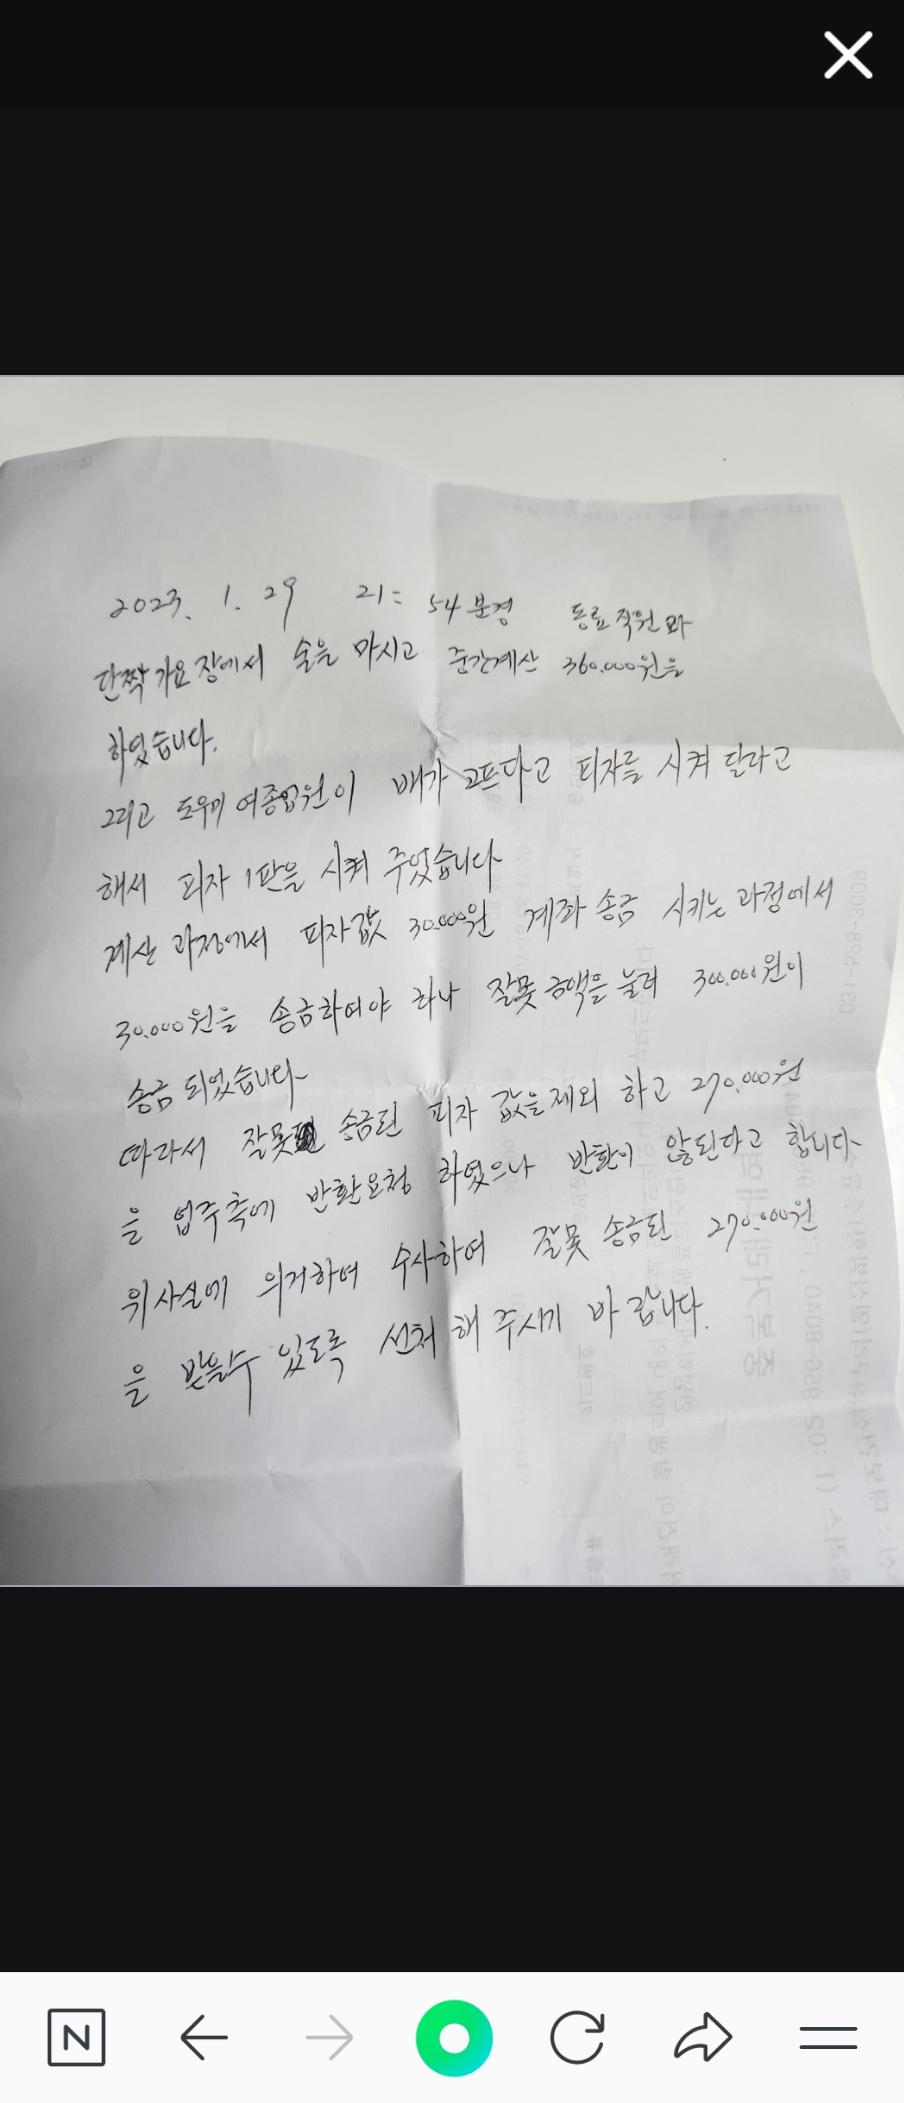 2023. 1. 29 21: 54분경 동료직원와
단짝가요장에서 술을 마시고 중간계산 360.000원을
하였습니다.
그리고 도우미 여종업원이 배가 고프다고 피자를 시켜 달라고
해서 피자 1판을 시켜 주었습니다
계산 과정에서 피자값 30.000원 계좌 송금 시키는 과정에서
30.000원을 송금하여야 하나 잘못 금액을 눌러 300.000원이
송금 되었습니다
따라서 잘못 송금된 피자 값을 제외 하고 270.000원
을 업주측에 반환요청 하였으나 반환이 않된다고 합니다
위사실에 의거하여 수사하여 잘못 송금된 270.000원
을 받을수 있도록 선처 해 주시기 바랍니다.
N